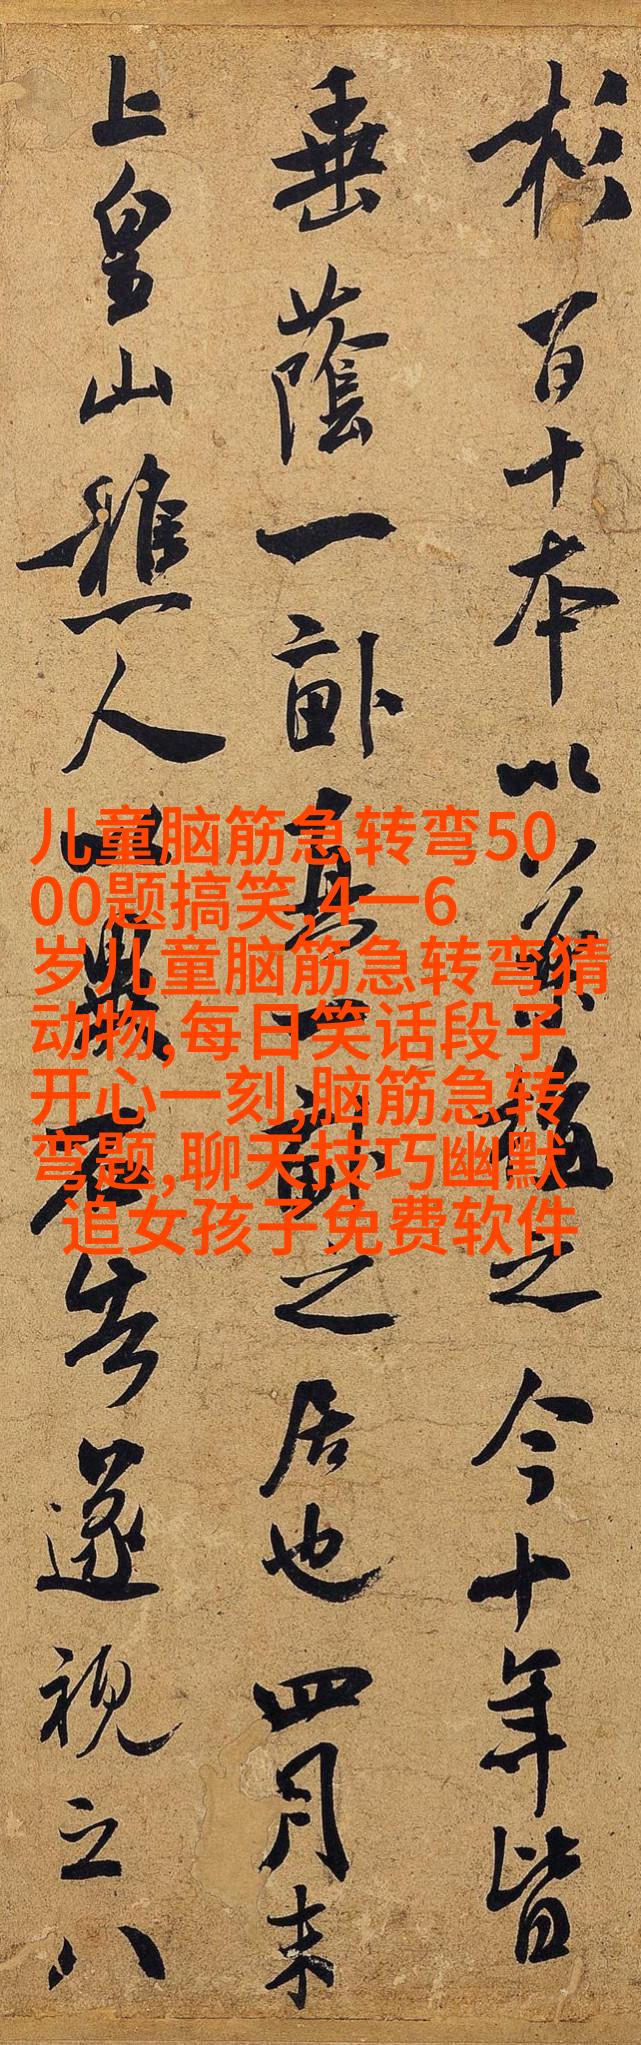 杉百十本以藥植之今十年皆
垂蔭一畝真一畝之居也四月末
上皇山樵人以異石告遂視之八
儿童脑筋急转弯50
00题搞笑,4一6
岁儿童脑筋急转弯猜
动物,每日笑话段子
开心一刻,脑筋急转
弯题,聊天技巧幽默
追女孩子免费软件